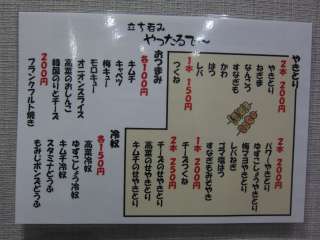 立ち呑み
やったるで〜
やきとり
2本 200円
ねぎま
なんこつ
すなぎも
かわ
はつ
レバ
1本 150円
つくね
バターやきとり
ゆずこしょうやきとり
梅ジソやきとり
ゴマ塩はつ
レバねぎ
すなぎもみそやき
1本 200円
チーズつくね
2本 250円
チーズのせやきとり
キムチのせやきとり
おつまみ
各100円
キムチ
キャベツ
梅キュー
モロキュー
オニオンスライス
高菜のおしんこ
韓国のりとチーズ
200円
フランクフルト焼き
冷奴
各150円
高菜冷奴
ゆずこしょう冷奴
キムチ冷奴
スタミナどうふ
もみじポンズどうふ